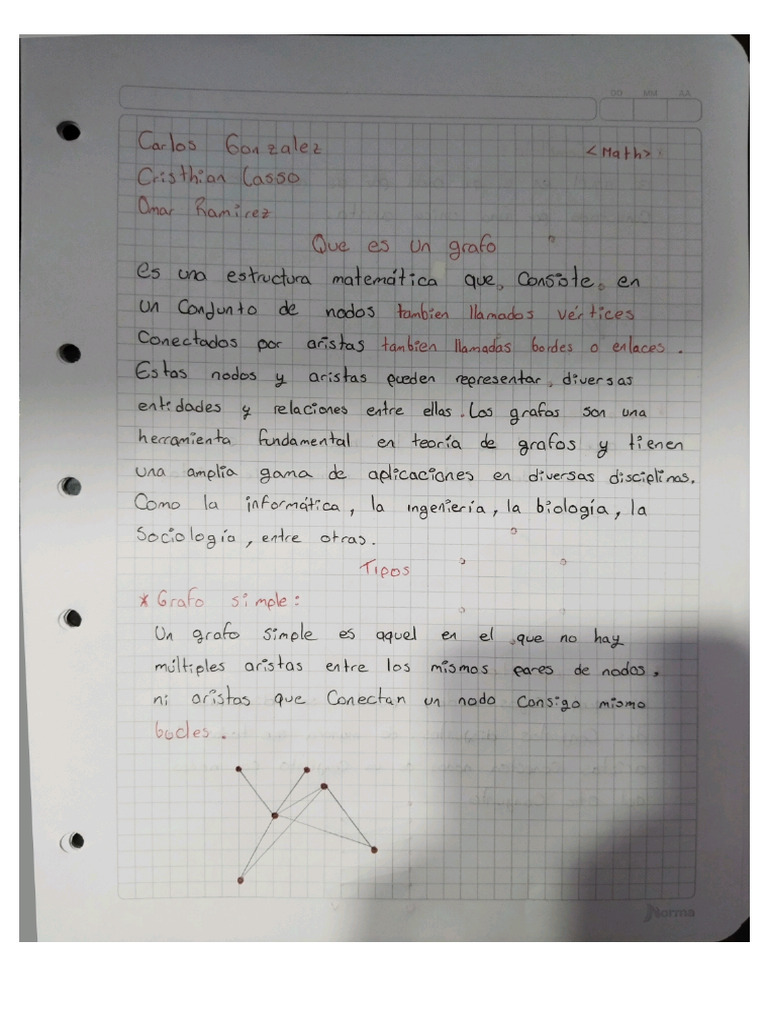 DD MM AA
Carlos Gonzalez
<Math>
Cristhian Lasso
Omar Ramirez
Que es un grafo
es una estructura matemática que, consiste, en
un conjunto de nodos tambien llamados vértices
Conectados por aristas tambien llamadas bordes o enlaces.
Estas nodos y aristas pueden representar, diversas
entidades y relaciones entre ellas. Los grafos son una
herramienta fundamental en teoría de grafos y tienen
una amplia gama de aplicaciones en diversas disciplinas.
Como la informática, la ingeniería, la biología, la
Sociología, entre otras.
Tipos
* Grafo simple:
Un grafo simple es aquel en el que no hay
múltiples aristas entre los mismos pares de nodos,
ni aristas que Conectan un nodo consigo mismo
bucles.
Norma